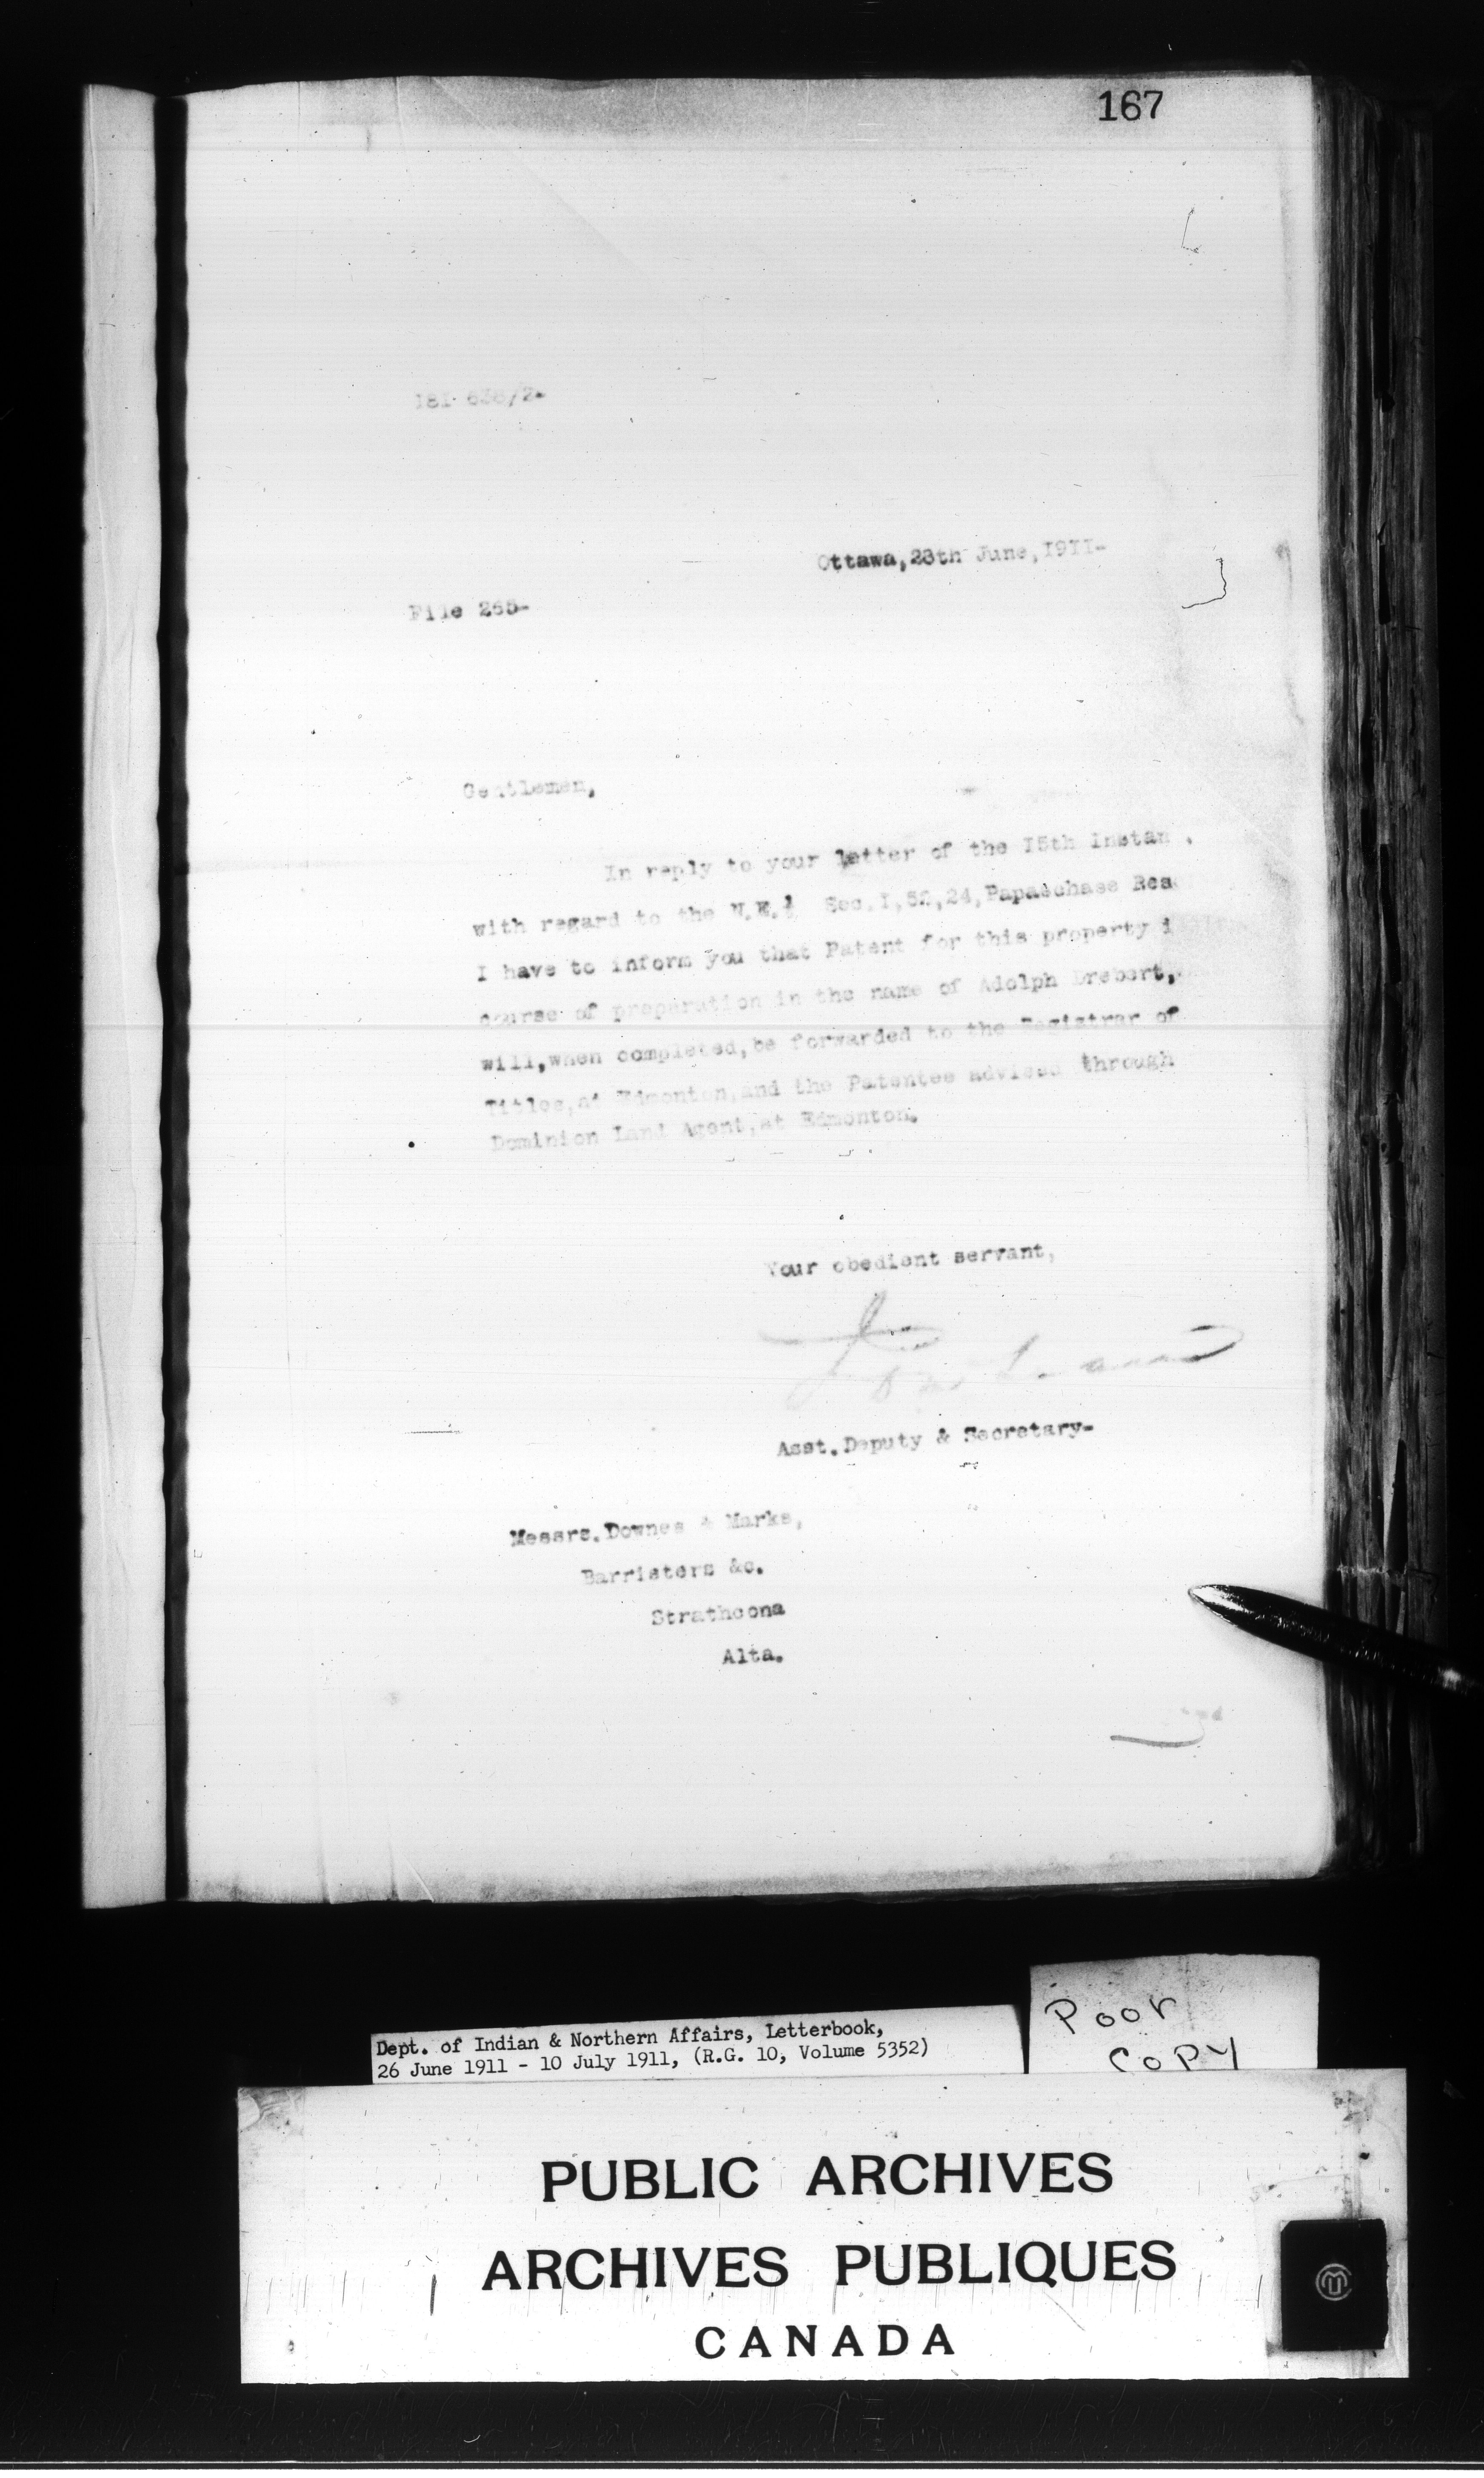 167
181 636/2-
Ottawa, 28th June, 1911-
File 265-
Gentlemen,
In reply to your letter of the 15th Instan .
with regard to the N.E.¼ Sec.1,52,24,Papaschase Res
I have to inform you that Patent for this property i
course of preparation in the name of Adolph Drebert,
will,when completed,be forwarded to the Registrar of
Titles,at Edmonton,and the Patentee advised through
Dominion Land Agent,at Edmonton.
Your obedient servant,
Asst.Deputy & Secretary-
Messrs.Downes & Marks,
Barristers &c.
Strathcona
Alta.
Dept. of Indian & Northern Affairs, Letterbook,
26 June 1911 - 10 July 1911, (R.G. 10, Volume 5352)
Poor
Copy
PUBLIC ARCHIVES
ARCHIVES PUBLIQUES
CANADA